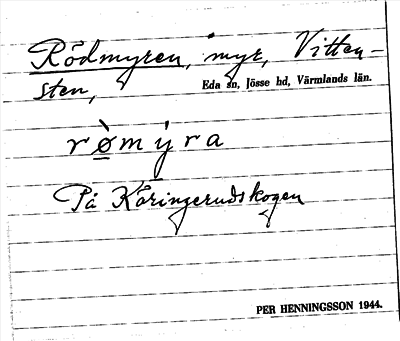 Rödmyren, myr, Vitten-
sten, Eda sn, Jösse hd, Värmlands län.
rø̀mýra
På Köringerudskogen
PER HENNINGSSON 1944.